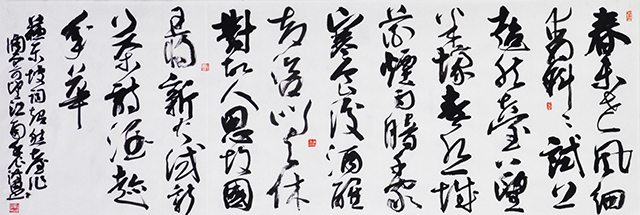 春未老風細
柳斜々試上
超然臺上望
半壕春水一城
花煙雨暗千家
寒食後酒醒
却咨嗟休
對故人思故國
且將新火試新
茶詩酒趁
年華
蘇東坡詞超然臺作